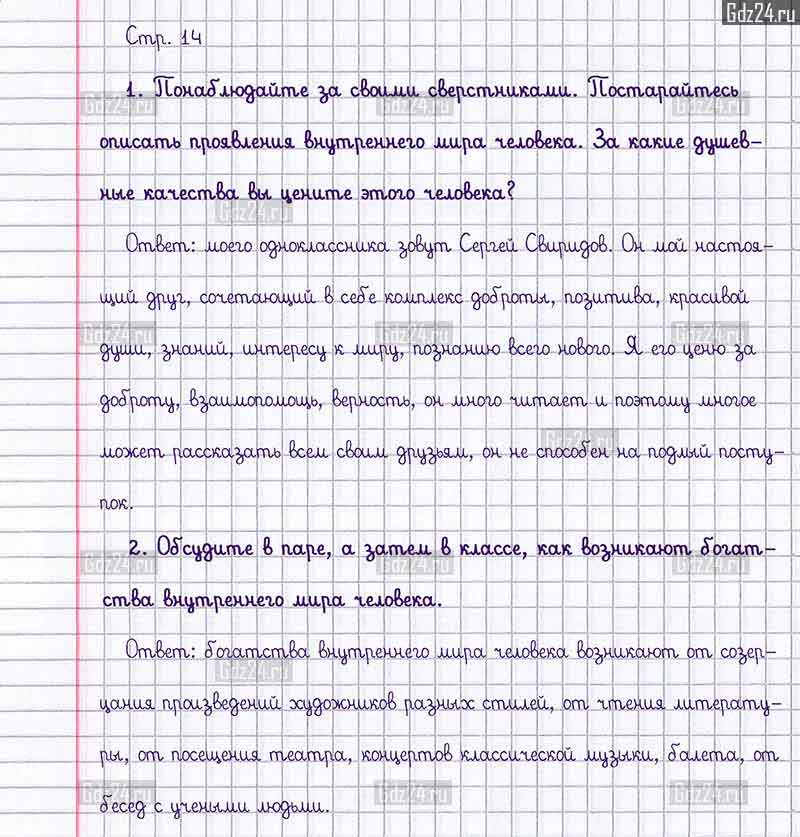 Gdz24.ru
Стр. 14
1. Понаблюдайте за своими сверстниками. Постарайтесь
описать проявления внутреннего мира человека. За какие душев-
ные качества вы цените этого человека?
Ответ: моего одноклассника зовут Сергей Свиридов. Он мой настоя-
щий друг, сочетающий в себе комплекс доброты, позитива, красивой
души, знаний, интересу к миру, познанию всего нового. Я его ценю за
доброту, взаимопомощь, верность, он много читает и поэтому многое
может рассказать всем своим друзьям, он не способен на подлый посту-
пок.
2. Обсудите в паре, а затем в классе, как возникают богат-
ства внутреннего мира человека.
Ответ: богатства внутреннего мира человека возникают от созер-
цания произведений художников разных стилей, от чтения литерату-
ры, от посещения театра, концертов классической музыки, балета, от
бесед с учеными людьми.